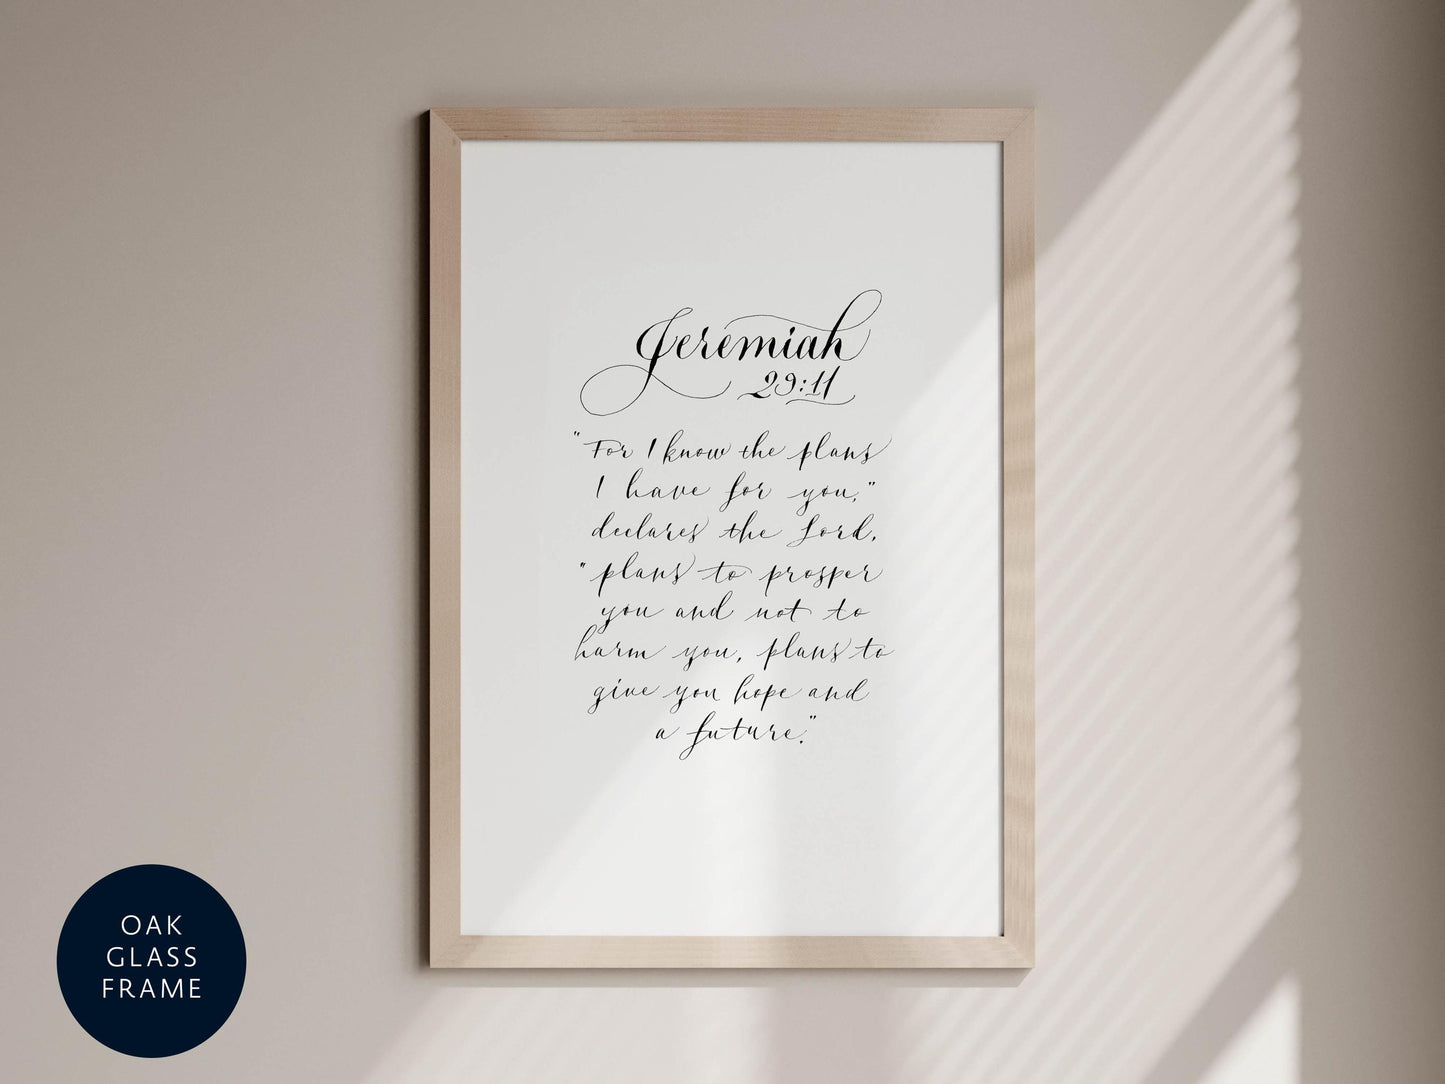 Jeremiah
29:11
"For I know the plans
I have for you,"
declares the Lord,
"plans to prosper
you and not to
harm you, plans to
give you hope and
a future."
OAK
GLASS
FRAME